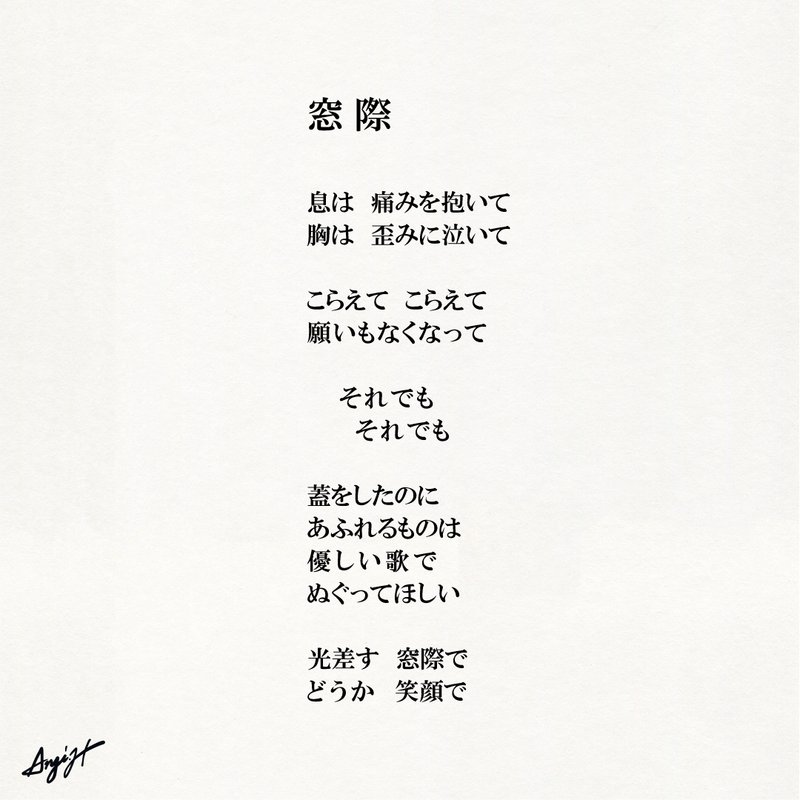 窓際
息は 痛みを抱いて
胸は 歪みに泣いて
こらえて こらえて
願いもなくなって
それでも
それでも
蓋をしたのに
あふれるものは
優しい歌で
ぬぐってほしい
光差す 窓際で
どうか 笑顔で
Angi.H